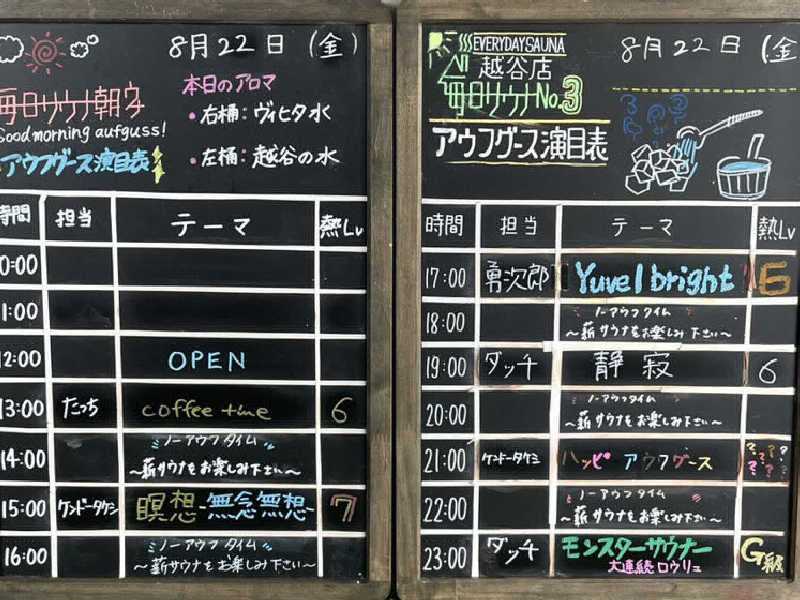 8月22日(金)
毎日サウナ朝ウ
Good morning aufguss!
アウフグース演目表
本日のアロマ
・右桶：ヴィヒタ水
・左桶：越谷の水
時間 担当 テーマ 熱Lv
0:00
1:00
12:00 OPEN
13:00 たっち coffee time 6
14:00 ノーアウフタイム
～薪サウナをお楽しみ下さい～
15:00 ケンドータケシ 瞑想-無念無想- 7
16:00 ノーアウフタイム
～薪サウナをお楽しみ下さい～
EVERYDAYSAUNA 8月22日(金
越谷店
毎日サウナNo.3
アウフグース演目表
時間 担当 テーマ 熱Lv
17:00 勇次郎 Yuvel bright 5
18:00 ノーアウフタイム
～薪サウナをお楽しみ下さい～
19:00 ダッチ 静寂 6
20:00 ノーアウフタイム
～薪サウナをお楽しみ下さい～
21:00 ケンドータケシ ハッピアウフグース ??????
22:00 ノーアウフタイム
～薪サウナをお楽しみ下さい～
23:00 ダッチ モンスターサウナー G級
大連続ロウリュ